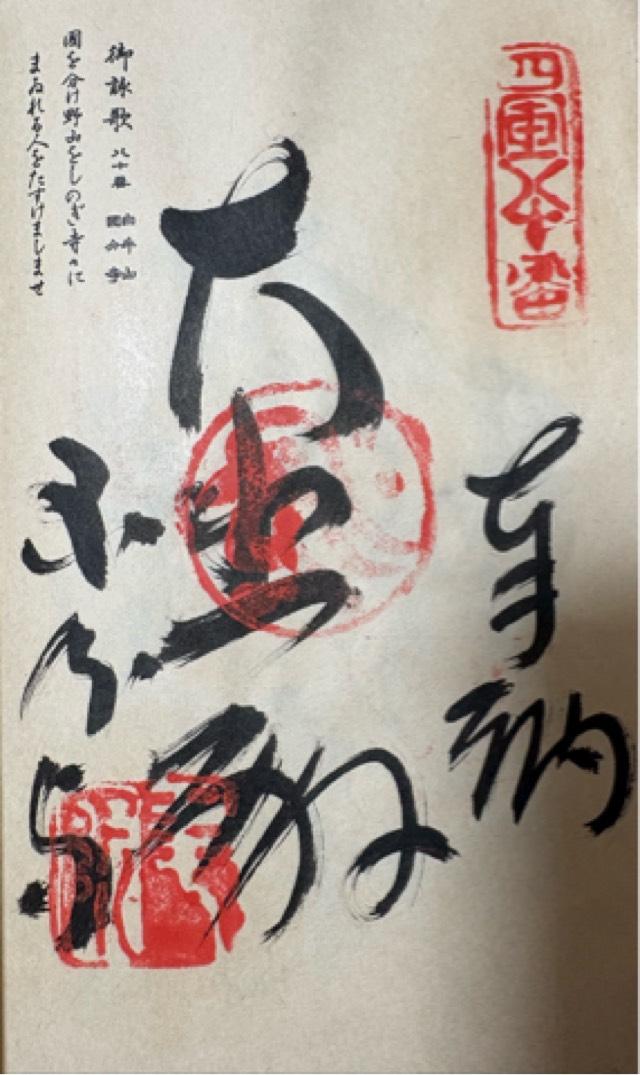 四國八十番
奉納
大悲殿
国分寺
御詠歌 八十番 白牛山 國分寺
國を分け野山をしのぎ寺々に
まゐれる人をたすけましませ